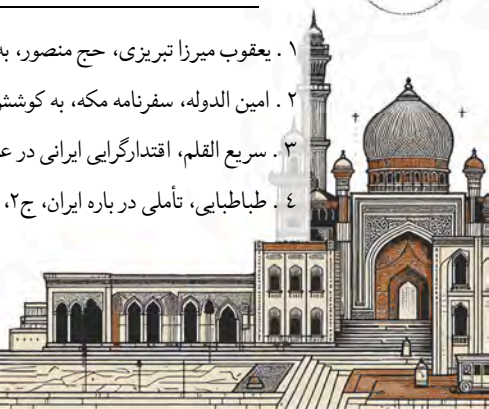 ۱ . یعقوب میرزا تبریزی، حج منصور، به
۲ . امین الدوله، سفرنامه مکه، به کوشش
۳ . سریع القلم، اقتدارگرایی ایرانی در
٤ . طباطبایی، تأملی در باره ایران، ج۲،